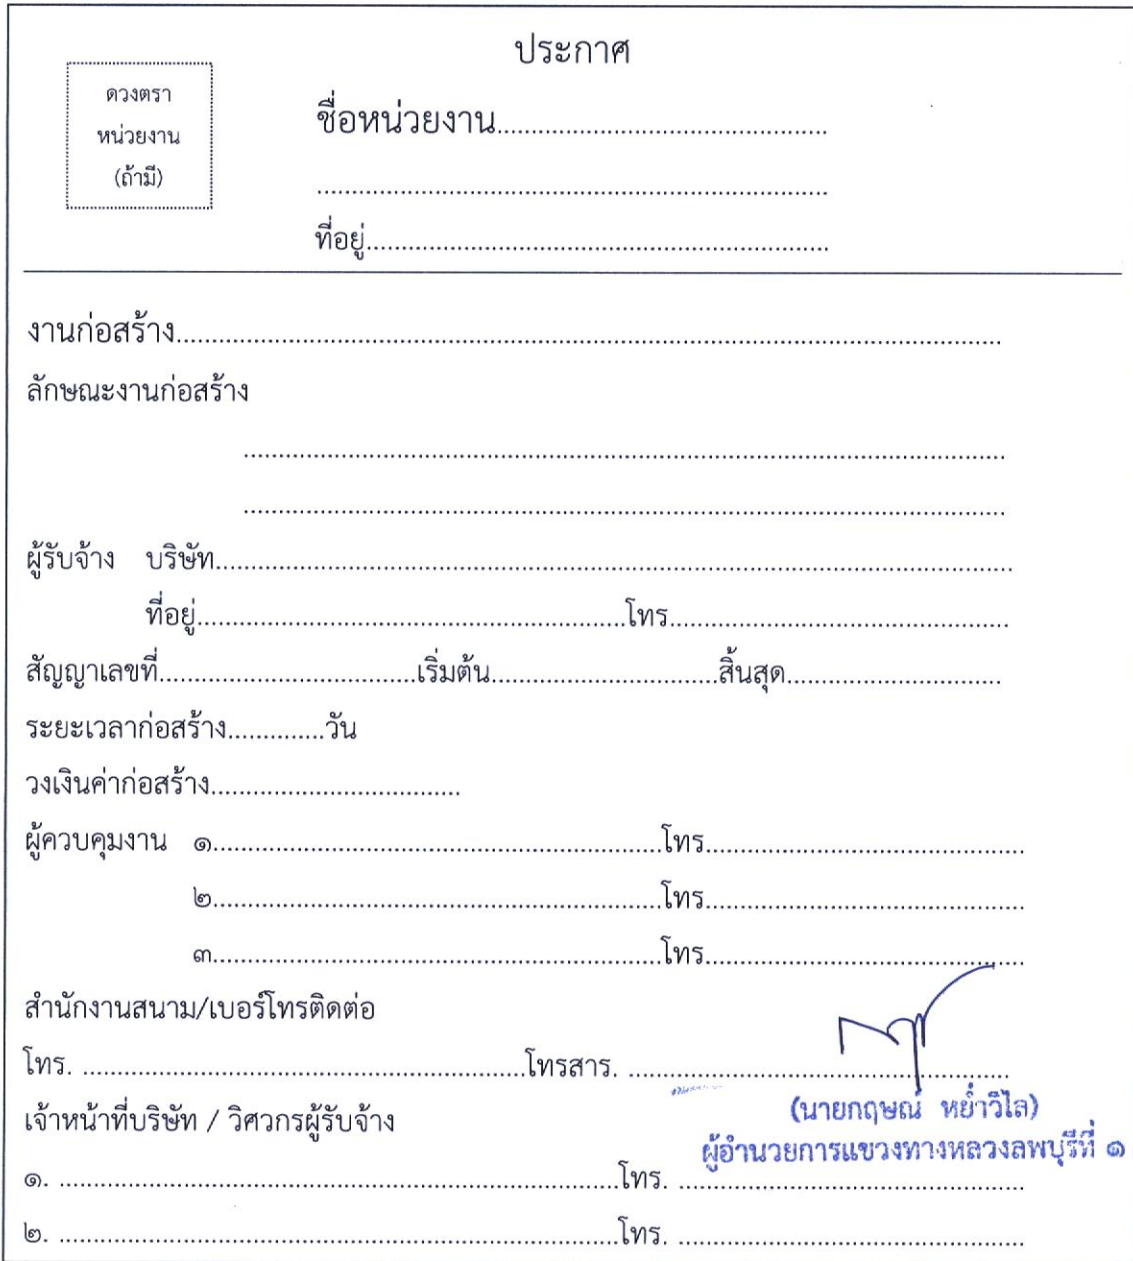 ประกาศ
ดวงตรา
หน่วยงาน
(ถ้ามี)
ชื่อหน่วยงาน................................................
..........................................................................
ที่อยู่...................................................................
งานก่อสร้าง......................................................................................................................
ลักษณะงานก่อสร้าง
.............................................................................................................
.............................................................................................................
ผู้รับจ้าง บริษัท..................................................................................................................
ที่อยู่.............................................................โทร.................................................
สัญญาเลขที่.....................................เริ่มต้น.................................สิ้นสุด...............................
ระยะเวลาก่อสร้าง..............วัน
วงเงินค่าก่อสร้าง....................................
ผู้ควบคุมงาน ๑................................................................โทร..............................................
๒................................................................โทร..............................................
๓................................................................โทร..............................................
สำนักงานสนาม/เบอร์โทรติดต่อ
โทร. ...............................................................โทรสาร. .......................................................
เจ้าหน้าที่บริษัท / วิศวกรผู้รับจ้าง
(นายกฤษณ์ หย่ำวิไล)
ผู้อำนวยการแขวงทางหลวงลพบุรีที่ ๑
๑. ................................................................................โทร. .................................................
๒. ................................................................................โทร. .................................................